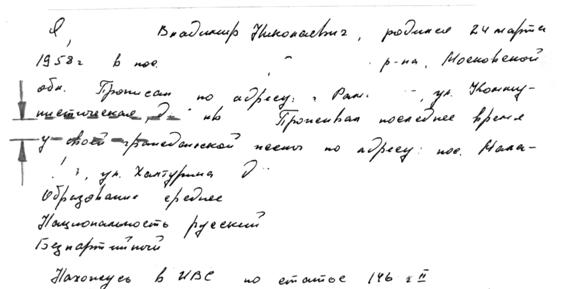 Я, Владимир Николаевич, родился 24 марта
1958 г в пос. р-на, Московской
обл. Прописан по адресу: г Рам. , ул. Комму-
нистическая д. кв Проживал последнее время
у своей гражданской жены по адресу: пос. Мала-
, ул. Халтурина д
Образование среднее
Национальность русский
Безпартийный
Нахожусь в ИВС по статье 146 ч II